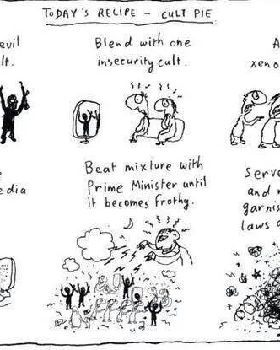 TODAY'S RECIPE – CULT PIE
evil
lt.
Blend with one
insecurity cult.
A
xeno
edia
Beat mixture with
Prime Minister until
it becomes frothy.
Serve
and
garnis
laws